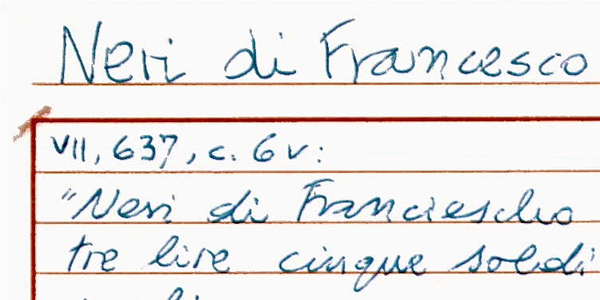 Neri di Francesco
VII, 637, c. 6v:
"Neri di Franciescho
tre lire cinque soldi